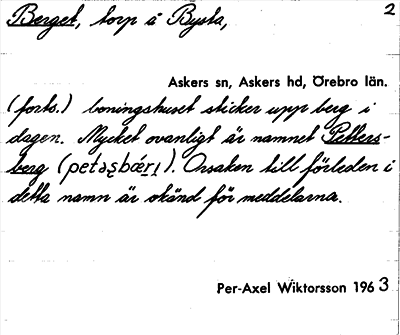 Berget, torp å Bysta,
2
Askers sn, Askers hd, Örebro län.
(forts.) boningshuset sticker upp berg i
dagen. Mycket ovanligt är namnet Petters-
berg (). Orsaken till förleden i
detta namn är okänd för meddelarna.
Per-Axel Wiktorsson 1963